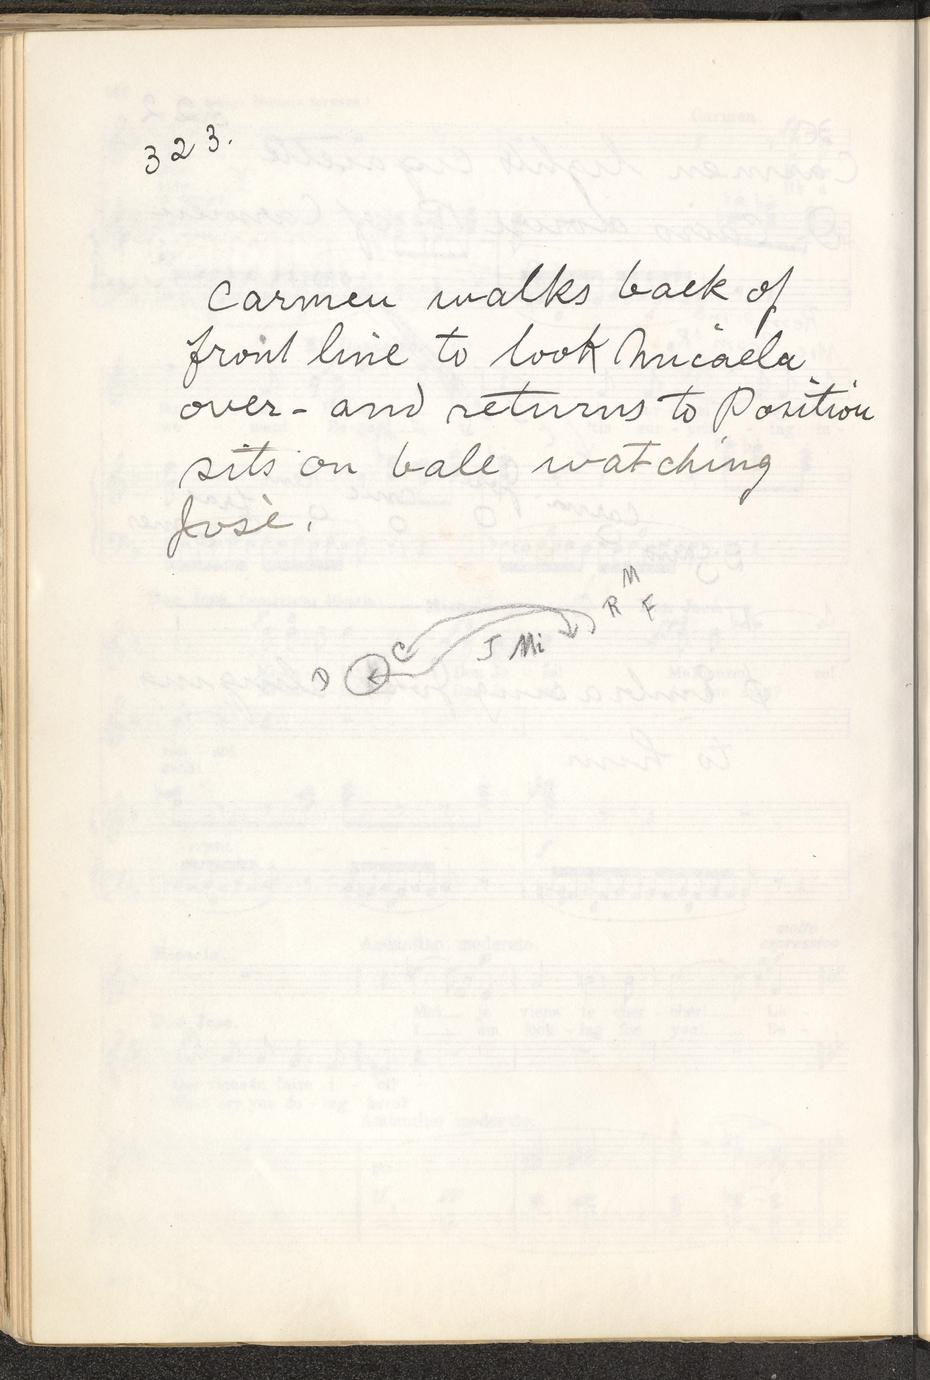 323.
Carmen walks back of
front line to look Micaela
over - and returns to Position
sits on bale watching
José.
M
R F
J Mi
C
D